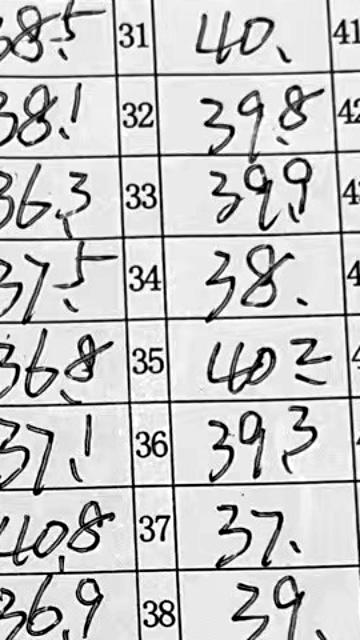 38.5 31 40. 41
38.1 32 39.8 42
36.3 33 39.9 4
37.5 34 38. 4
36.8 35 40.2
37.1 36 39.3
40.8 37 37.
36.9 38 39.